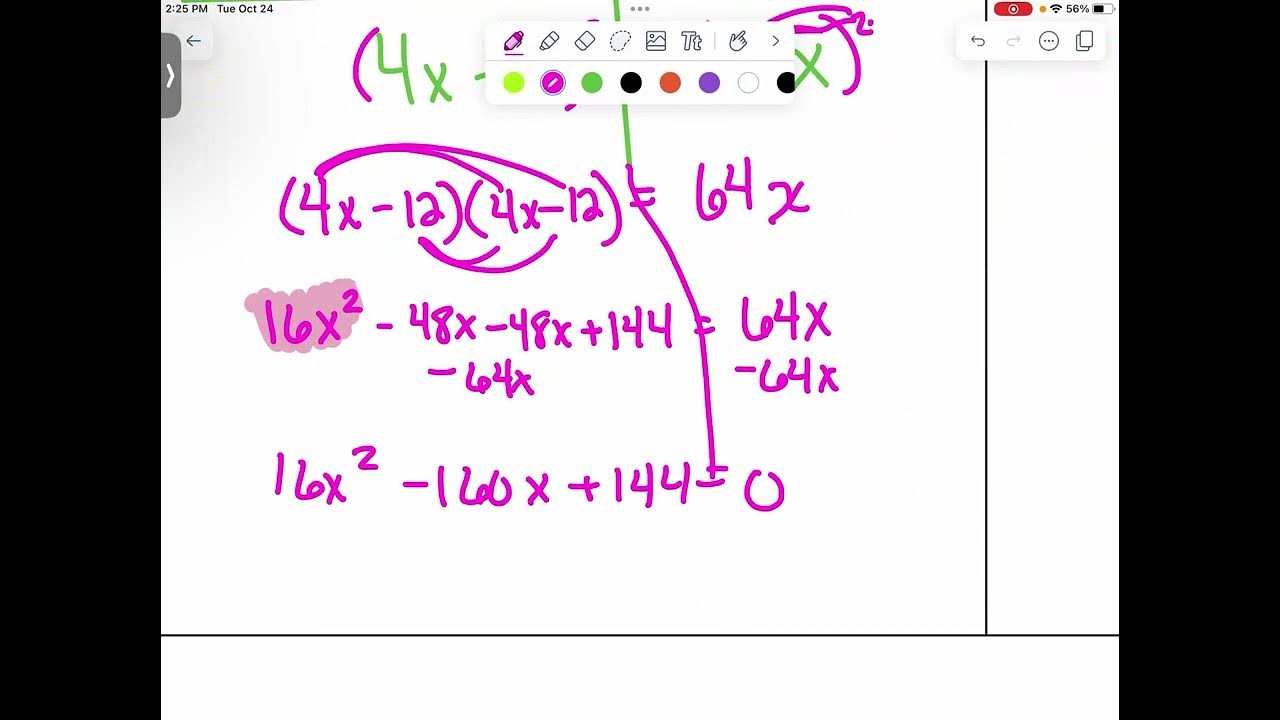 2:25 PM Tue Oct 24
56%
Tt
(4x - x)²
(4x - 12)(4x - 12) = 64x
16x² - 48x - 48x + 144 = 64x
- 64x - 64x
16x² - 160x + 144 = 0